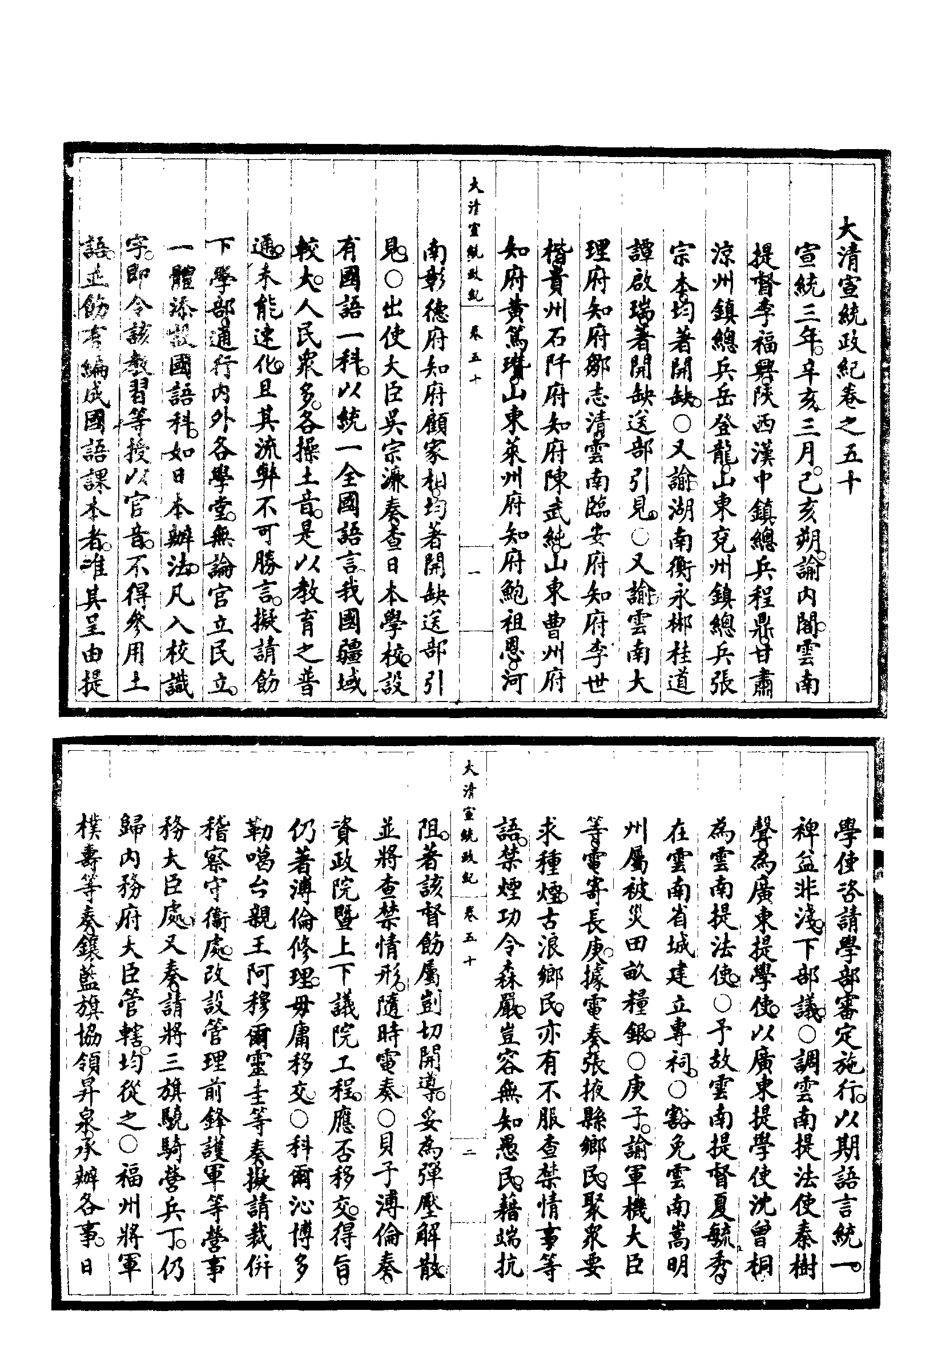 大清宣統政紀卷之五十
宣統三年。辛亥三月。己亥朔。諭內閣。雲南
提督李福興。陝西漢中鎮總兵程鼎。甘肅
涼州鎮總兵岳登龍。山東兗州鎮總兵張
宗本。均著開缺。○又諭湖南衡永郴桂道
譚啟瑞。著開缺送部引見。○又諭雲南大
理府知府鄒志清。雲南臨安府知府李世
楷。貴州石阡府知府陳武純。山東曹州府
知府黃篤瓚。山東萊州府知府鮑祖恩。河
大清宣統政紀 卷五十 一
南彰德府知府顧家相。均著開缺送部引
見。○出使大臣吳宗濂奏。查日本學校。設
有國語一科。以統一全國語言。我國疆域
較大。人民眾多。各操土音。是以教育之普
通。未能速化。且其流弊不可勝言。擬請飭
下學部。通行內外各學堂。無論官立民立。
一體添設國語科。如日本辦法。凡入校識
字。即令該教習等授以官音。不得參用土
語。並飭有編成國語課本者。准其呈由提
學使咨請學部審定施行。以期語言統一。
裨益非淺。下部議。○調雲南提法使秦樹
聲。為廣東提學使。以廣東提學使沈曾桐
為雲南提法使。○予故雲南提督夏毓秀。
在雲南省城建立專祠。○豁免雲南嵩明
州屬被災田畝糧銀。○庚子。諭軍機大臣
等。電寄長庚。據電奏張掖縣鄉民。聚眾要
求種煙。古浪鄉民。亦有不服查禁情事等
語。禁煙功令森嚴。豈容無知愚民。藉端抗
大清宣統政紀 卷五十 二
阻。著該督飭屬剴切開導。妥為彈壓解散。
並將查禁情形。隨時電奏。○貝子溥倫奏。
資政院暨上下議院工程。應否移交。得旨。
仍著溥倫修理。毋庸移交。○科爾沁博多
勒噶台親王阿穆爾靈圭等奏。擬請裁併
稽察守衛處。改設管理前鋒護軍等營事
務大臣處。又奏請將三旗驍騎營兵丁。仍
歸內務府大臣管轄。均從之。○福州將軍
樸壽等奏。鑲藍旗協領昇泉。承辦各事。日